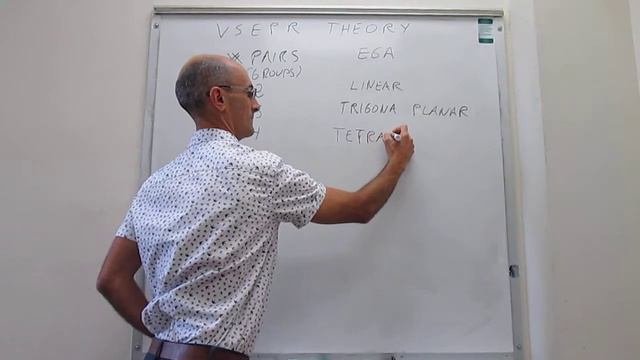 VSEPR THEORY
* PAIRS EGA
(GROUPS)
2 LINEAR
3 TRIGONA PLANAR
4 TETRA